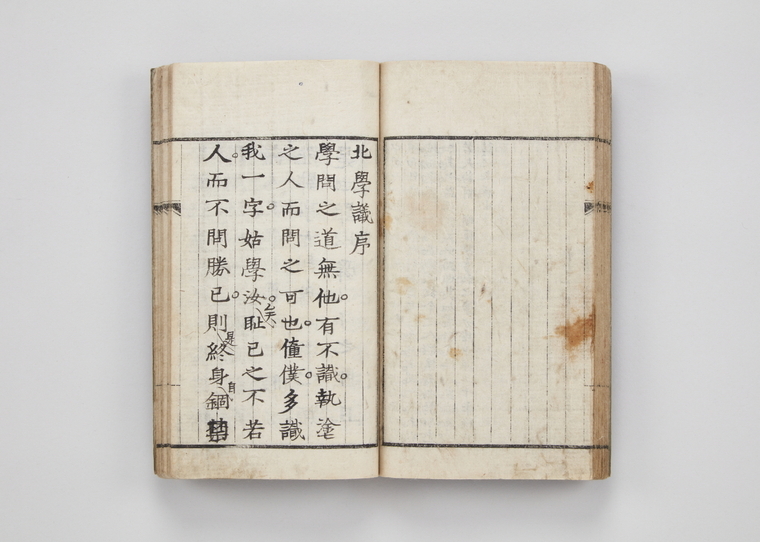 北學議序
學問之道無他。有不識。執塗
之人而問之可也。僮僕。多識
我一字。姑學汝。矣恥己之不若
人。而不問勝己。則是終身自錮